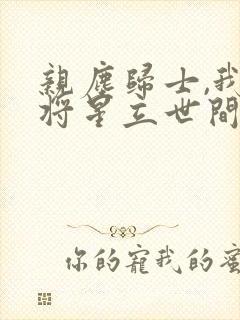 親塵歸士,我
将星立世間
你的寵我的蜜